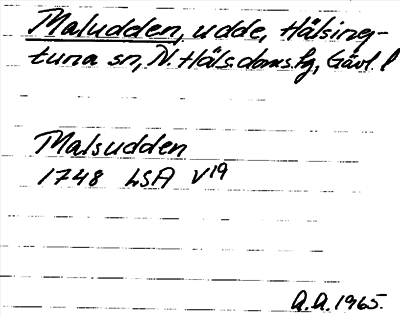 Maludden, udde, Hälsing-
tuna sn, N. Häls. doms.lg, Gävl. l
Malsudden
1748 LSA V19
A.A. 1965.